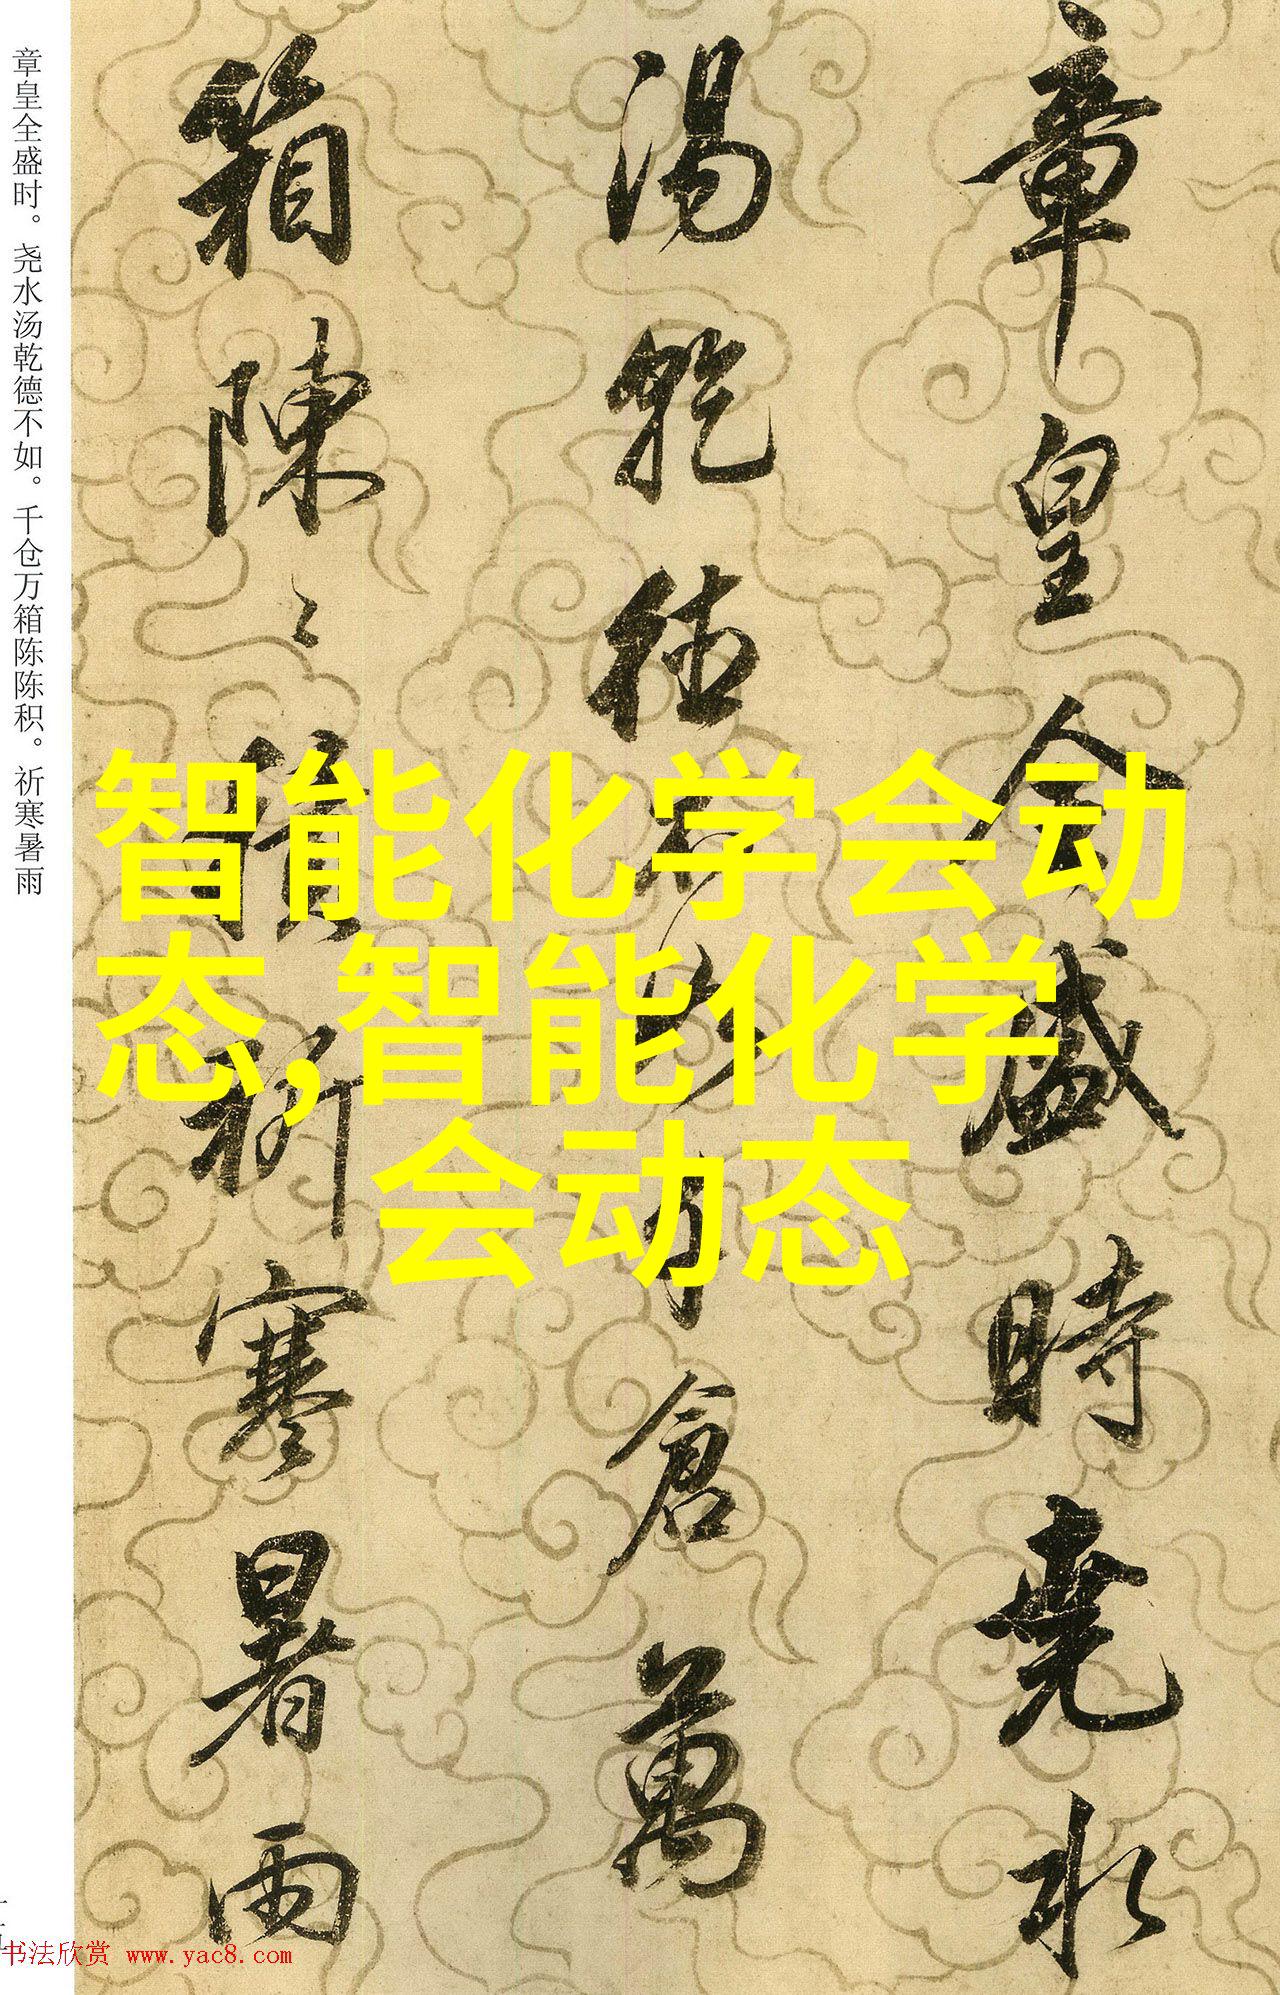 章皇全盛時堯水
湯乾德不如千倉萬
箱陳〻積祈寒暑雨
章皇全盛时。尧水汤乾德不如。千仓万箱陈陈积。祈寒暑雨
智能化学会动
态,智能化学
会动态
书法欣赏 www.yac8.com